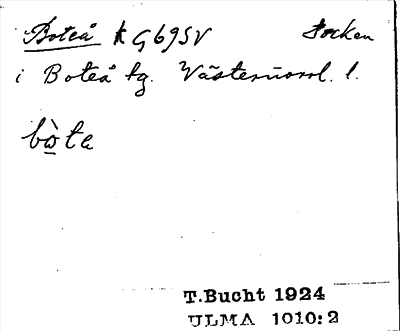 Boteå k G69SV Socken
i Boteå tg. Västernorrl. l.
bò̲ta
T.Bucht 1924
ULMA 1010:2